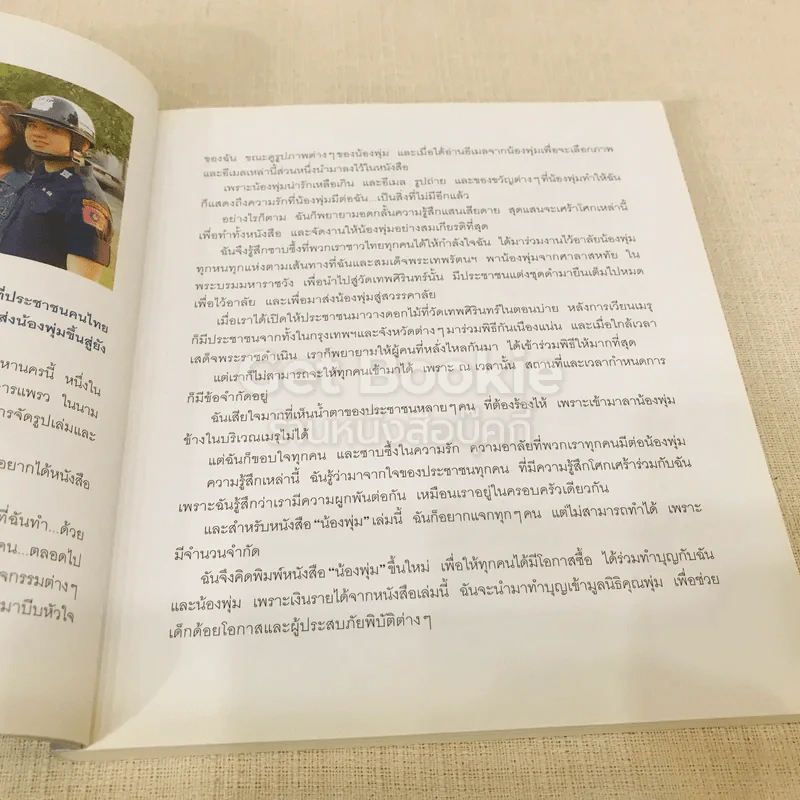 ที่ประชาชนคนไทย
ส่งน้องพุ่มขึ้นสู่ยัง
หานครนี้ หนึ่งใน
การแพรว ในนาม
การจัดรูปเล่มและ
อยากได้หนังสือ
ที่ฉันทำ...ด้วย
คน...ตลอดไป
จกรรมต่างๆ
มาบีบหัวใจ
ของฉัน ขณะดูรูปภาพต่างๆของน้องพุ่ม และเมื่อได้อ่านอีเมลจากน้องพุ่มเพื่อจะเลือกภาพ
และอีเมลเหล่านี้ส่วนหนึ่งนำมาลงไว้ในหนังสือ
เพราะน้องพุ่มน่ารักเหลือเกิน และอีเมล รูปถ่าย และของขวัญต่างๆที่น้องพุ่มทำให้ฉัน
ก็แสดงถึงความรักที่น้องพุ่มมีต่อฉัน...เป็นสิ่งที่ไม่มีอีกแล้ว
อย่างไรก็ตาม ฉันก็พยายามอดกลั้นความรู้สึกแสนเสียดาย สุดแสนจะเศร้าโศกเหล่านี้
เพื่อทำทั้งหนังสือ และจัดงานให้น้องพุ่มอย่างสมเกียรติที่สุด
ฉันจึงรู้สึกซาบซึ้งที่พวกเราชาวไทยทุกคนได้ให้กำลังใจฉัน ได้มาร่วมงานไว้อาลัยน้องพุ่ม
ทุกหนทุกแห่งตามเส้นทางที่ฉันและสมเด็จพระเทพรัตนฯ พาน้องพุ่มจากศาลาสหทัย ใน
พระบรมมหาราชวัง เพื่อนำไปสู่วัดเทพศิรินทร์นั้น มีประชาชนแต่งชุดดำมายืนเต็มไปหมด
เพื่อไว้อาลัย และเพื่อมาส่งน้องพุ่มสู่สวรรคาลัย
เมื่อเราได้เปิดให้ประชาชนมาวางดอกไม้ที่วัดเทพศิรินทร์ในตอนบ่าย หลังการเวียนเมรุ
ก็มีประชาชนจากทั้งในกรุงเทพฯและจังหวัดต่างๆมาร่วมพิธีกันเนืองแน่น และเมื่อใกล้เวลา
เสด็จพระราชดำเนิน เราก็พยายามให้ผู้คนที่หลั่งไหลกันมา ได้เข้าร่วมพิธีให้มากที่สุด
แต่เราก็ไม่สามารถจะให้ทุกคนเข้ามาได้ เพราะ ณ เวลานั้น สถานที่และเวลากำหนดการ
ก็มีข้อจำกัดอยู่
ฉันเสียใจมากที่เห็นน้ำตาของประชาชนหลายๆคน ที่ต้องร้องไห้ เพราะเข้ามาลาน้องพุ่ม
ข้างในบริเวณเมรุไม่ได้
แต่ฉันก็ขอบใจทุกคน และซาบซึ้งในความรัก ความอาลัยที่พวกเราทุกคนมีต่อน้องพุ่ม
ความรู้สึกเหล่านี้ ฉันรู้ว่ามาจากใจของประชาชนทุกคน ที่มีความรู้สึกโศกเศร้าร่วมกับฉัน
เพราะฉันรู้สึกว่าเรามีความผูกพันต่อกัน เหมือนเราอยู่ในครอบครัวเดียวกัน
และสำหรับหนังสือ “น้องพุ่ม” เล่มนี้ ฉันก็อยากแจกทุกๆคน แต่ไม่สามารถทำได้ เพราะ
มีจำนวนจำกัด
ฉันจึงคิดพิมพ์หนังสือ “น้องพุ่ม” ขึ้นใหม่ เพื่อให้ทุกคนได้มีโอกาสซื้อ ได้ร่วมทำบุญกับฉัน
และน้องพุ่ม เพราะเงินรายได้จากหนังสือเล่มนี้ ฉันจะนำมาทำบุญเข้ามูลนิธิคุณพุ่ม เพื่อช่วย
เด็กด้อยโอกาสและผู้ประสบภัยพิบัติต่างๆ
Get Bookie
ร้านหนังสือบุ๊คกี้